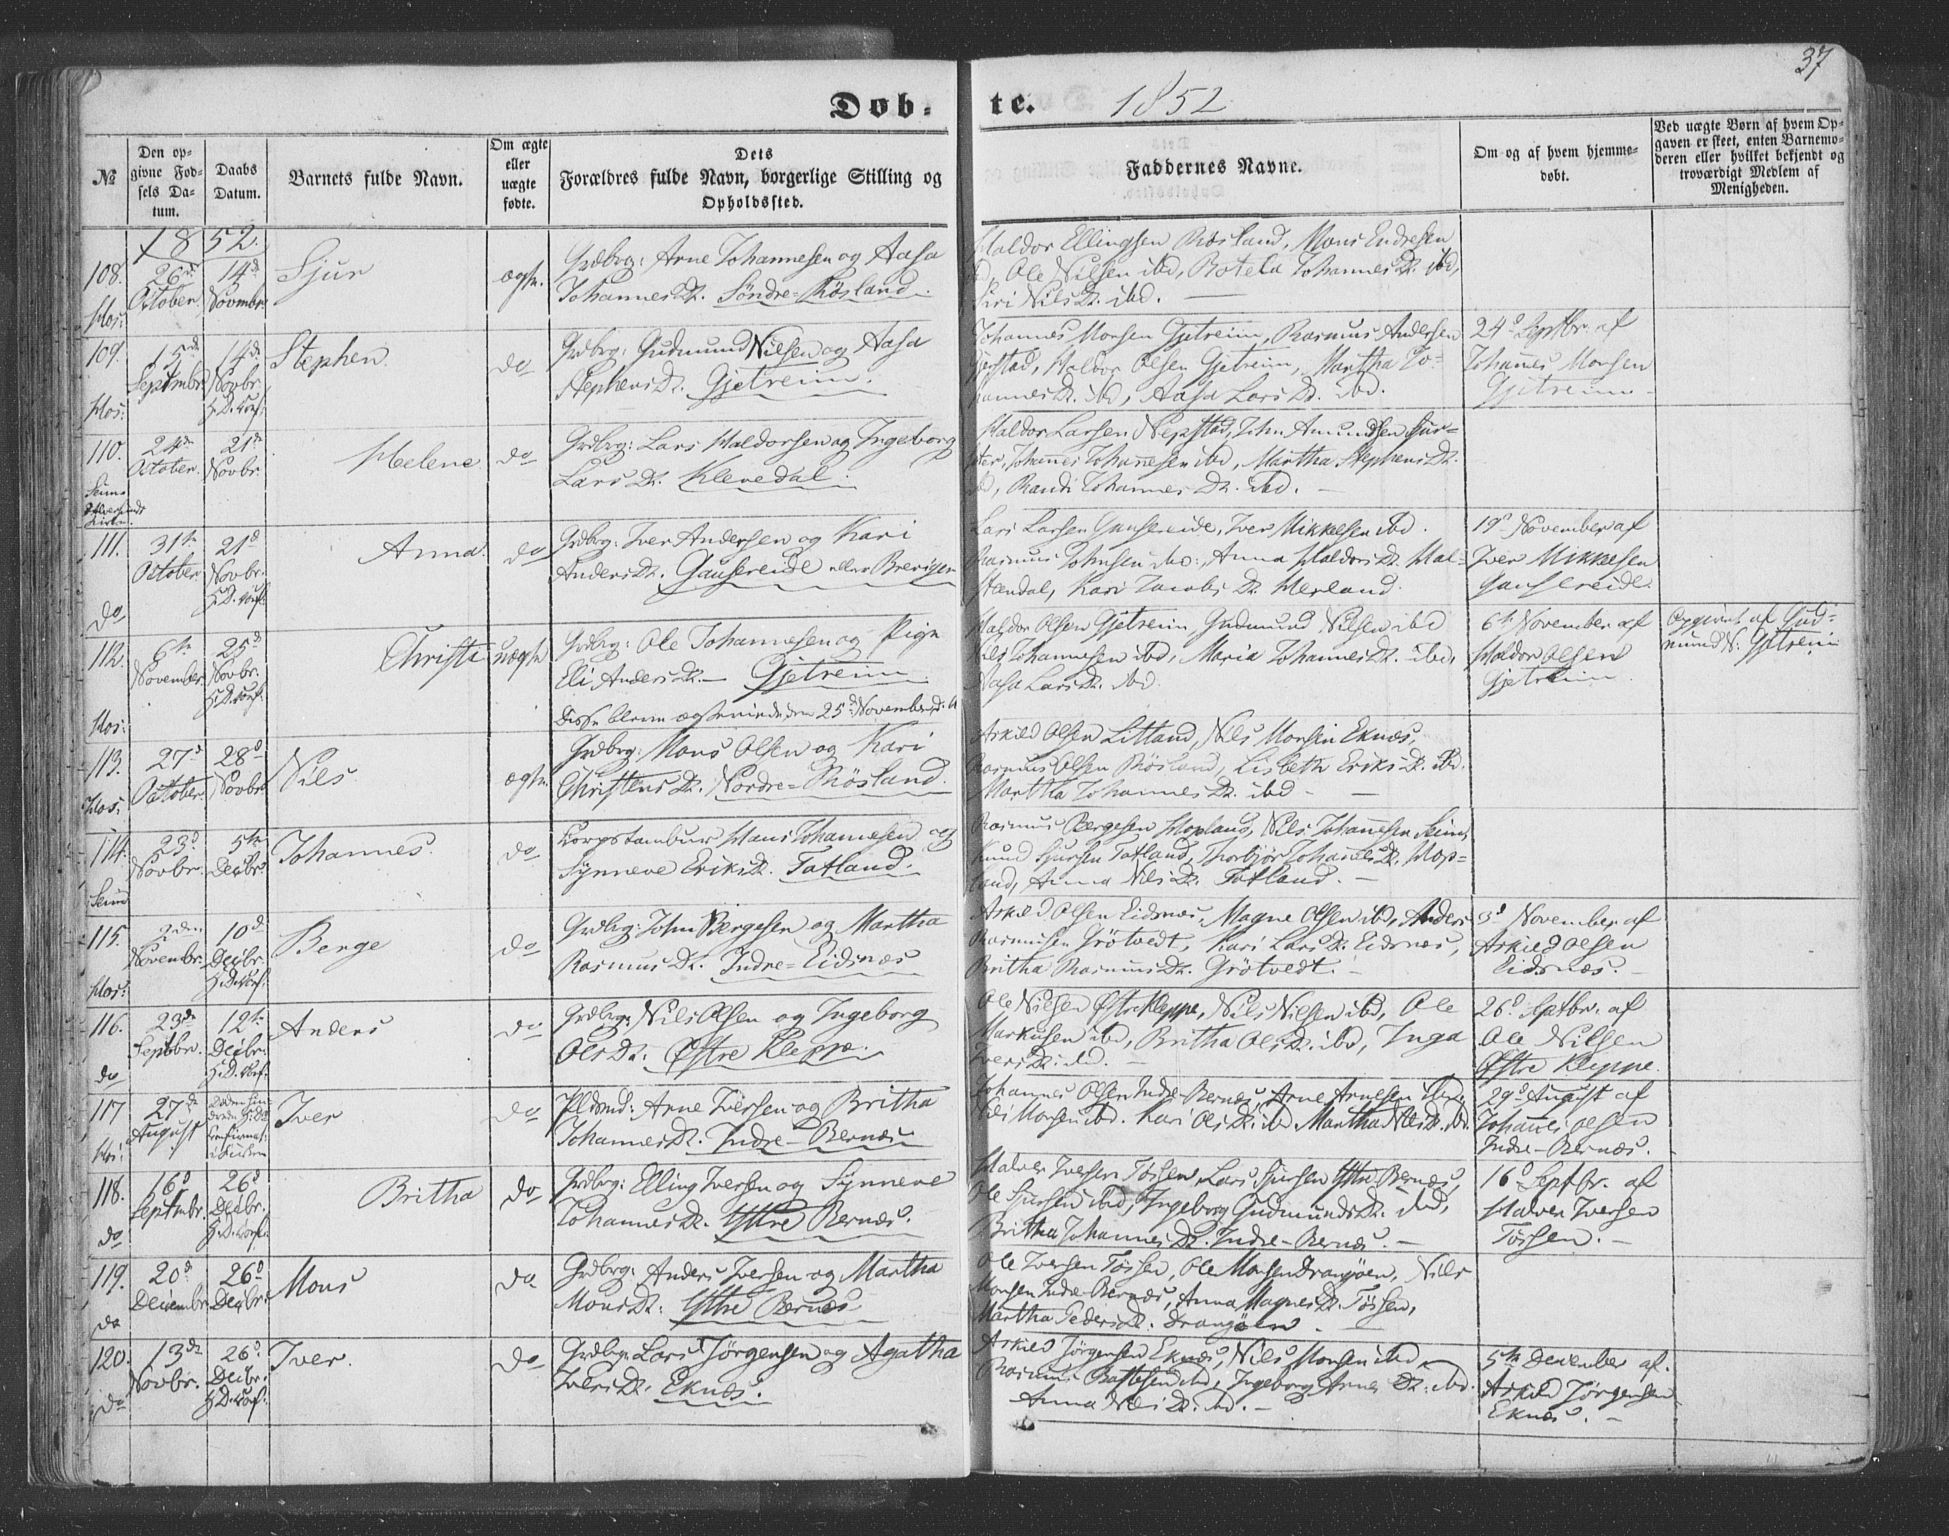 37
Døb-
te. 1852
№
Den op-
givne Fød-
sels Da-
tum.
Daabs
Datum.
Barnets fulde Navn.
Om ægte
eller
uægte
fødte.
Dets
Forældres fulde Navn, borgerlige Stilling og
Opholdssted.
Faddernes Navne.
Om og af hvem hjemme-
døbt.
Ved uægte Børn af hvem Op-
gaven er skeet, enten Barnemo-
deren eller hvilket bekjendt og
troværdigt Medlem af
Menigheden.
1852.
108.
Hos:
26de
October.
14de
Novmbr.
Sjur
ægte.
Grdbrg: Arne Johannesen og Aasa
Johannes Dr. Söndre-Rösland.
Haldor Ellingsen Rösland, Mons Endresen
ibd, Ole Nilsen ibd, Botela Johannes Dr. ibd,
Siri Nils Dr. ibd. —
109.
Hos:
15de
Septmbr.
14de
Novbr.
H.D. vorf.
Stephen.
do
Grdbrg: Gudmund Nilsen og Aasa
Stephens Dr. Gjetreim.
Johannes Monsen Gjetreim, Rasmus Andersen
Gjerstad, Haldor Olsen Gjetreim, Martha Jo-
hannes Dr. ibd, Aasa Lars Dr. ibd.
24d Septbr. af
Johannes Monsen
Gjetreim
110.
Seims
24de
October.
21de
Novbr.
Helene
do
Grdbrg: Lars Haldorsen og Ingeborg
Lars Dr. Klevedal.
Haldor Larsen Nepstad, John Amundsen
Johannes Johannesen ibd, Martha Stephens Dr.
ibd, Randi Johannes Dr. ibd. —
111.
do
31te
October
21d
Novbr.
H.D. vorf.
Anna.
do
Grdbrg: Iver Andersen og Kari
Anders Dr. Gausereide eller
Lars Larsen Gausereide, Iver Mikkelsen ibd.
Rasmus Johnsen ibd:, Anna Haldors Dr. Hal-
stendal, Kari Jacobs Dr. Herland.
19d November af
Iver Mikkelsen
Gausereide.
112.
Hos:
6te
November
25d
Novbr.
H.D. vorf.
Christi
uægte
Grdbrg: Ole Johannesen og Pige
Eli Anders Dr. — Gjetreim.
Disse bleve ægteviede den 25d November d: A
Haldor Olsen Gjetreim, Gudmund Nilsen ibd
Nils Johannesen ibd, Maria Johannes Dr. ibd,
Aasa Lars Dr. ibd.
6te November af
Haldor Olsen
Gjetreim.
Opgivet af Gud-
mund N. Gjetreim
113.
Hos:
27d
October.
28d
Novbr.
Nils
ægte.
Grdbrg: Mons Olsen og Kari
Christens Dr. Nordre-Rösland.
Askild Olsen Litland, Nils Monsen Eknæs,
Rasmus Olsen Rösland, Lisbeth Eriks Dr. ibd.
Martha Johannes Dr. ibd —
114.
Seims
23d
Novbr.
5te
Decbr.
Johannes.
do
Korpstambur Hans Johannesen og
Synneve Eriks Dr. Tatland.
Rasmus Bergesen Hopland, Nils Johannesen Seim,
Knud Sjursen Tatland, Thorbjør Johannes Dr. Hop-
land, Anna Nils Dr. Tatland. —
115.
Hos:
2den
Novembr.
10d
Decbr.
H.D. vorf.
Berge
do
Grdbrg: John Bergesen og Martha
Rasmus Dr. Indre-Eidsnæs
Askild Olsen Eidsnæs, Magne Olsen ibd, Anders
Rasmusen Grötvedt, Kari Lars Dr. Eidsnæs,
Britha Rasmus Dr. Grötvedt. —
3d November af
Askild Olsen
Eidsnæs. —
116.
do
23de
Septbr.
12te
Decbr.
H.D. vorf.
Anders
do
Grdbrg: Nils Olsen og Ingeborg
Ols Dr. Østre Kleppe.
Ole Nilsen Østre Kleppe, Nils Nilsen ibd, Ole
Markusen ibd, Britha Ols Dr. ibd, Inga
Ivers Dr. ibd. —
26d Septbr. af
Ole Nilsen
Østre Kleppe.
117
27de
August
Iver
do
Pldsmd: Arne Iversen og Britha
Johannes Dr. Indre-Bernæs
Johannes Olsen Indre-Bernæs, Arne Arnesen ibd,
Nils Monsen ibd. Kari Ols Dr. ibd Martha Nils Dr. ibd.
29d August af
Johannes Olsen
Indre-Bernæs.
118.
do
16d
Septmbr.
26d
Decbr.
H.D. vorf.
Britha
do
Grdbrg: Elling Iversen og Synneve
Johannes Dr. Ystre Bernæs.
Halver Iversen Tössen, Lars Sjursen Ystre Bernæs,
Ole Sjursen ibd, Ingeborg Gudmunds Dr. ibd,
Britha Johannes Dr. Indre-Bernæs. —
16d Septbr. af
Halver Iversen
Tössen. —
119.
do
20d
Decembr
26d
Decbr.
Mons
do
Grdbrg: Anders Iversen og Martha
Mons Dr. Ystre Bernæs
Ole Iversen Tössen, Ole Monsen Drangöen, Nils
Monsen Indre-Bernæs, Anna Magnes Dr. Tössen,
Martha Peders Dr. Drangöen. —
120.
do
13de
Novbr.
26d
Decbr.
H.D. vorf.
Iver.
do
Grdbrg: Lars Jörgensen og Agatha
Ivers Dr. Eknæs.
Askild Jörgensen Eknæs, Nils Monsen ibd,
Rasmus Bottelsen ibd, Ingeborg Arnes Dr. ibd.
Anna Nils Dr. ibd. —
5te December af
Askild Jörgensen
Eknæs. —